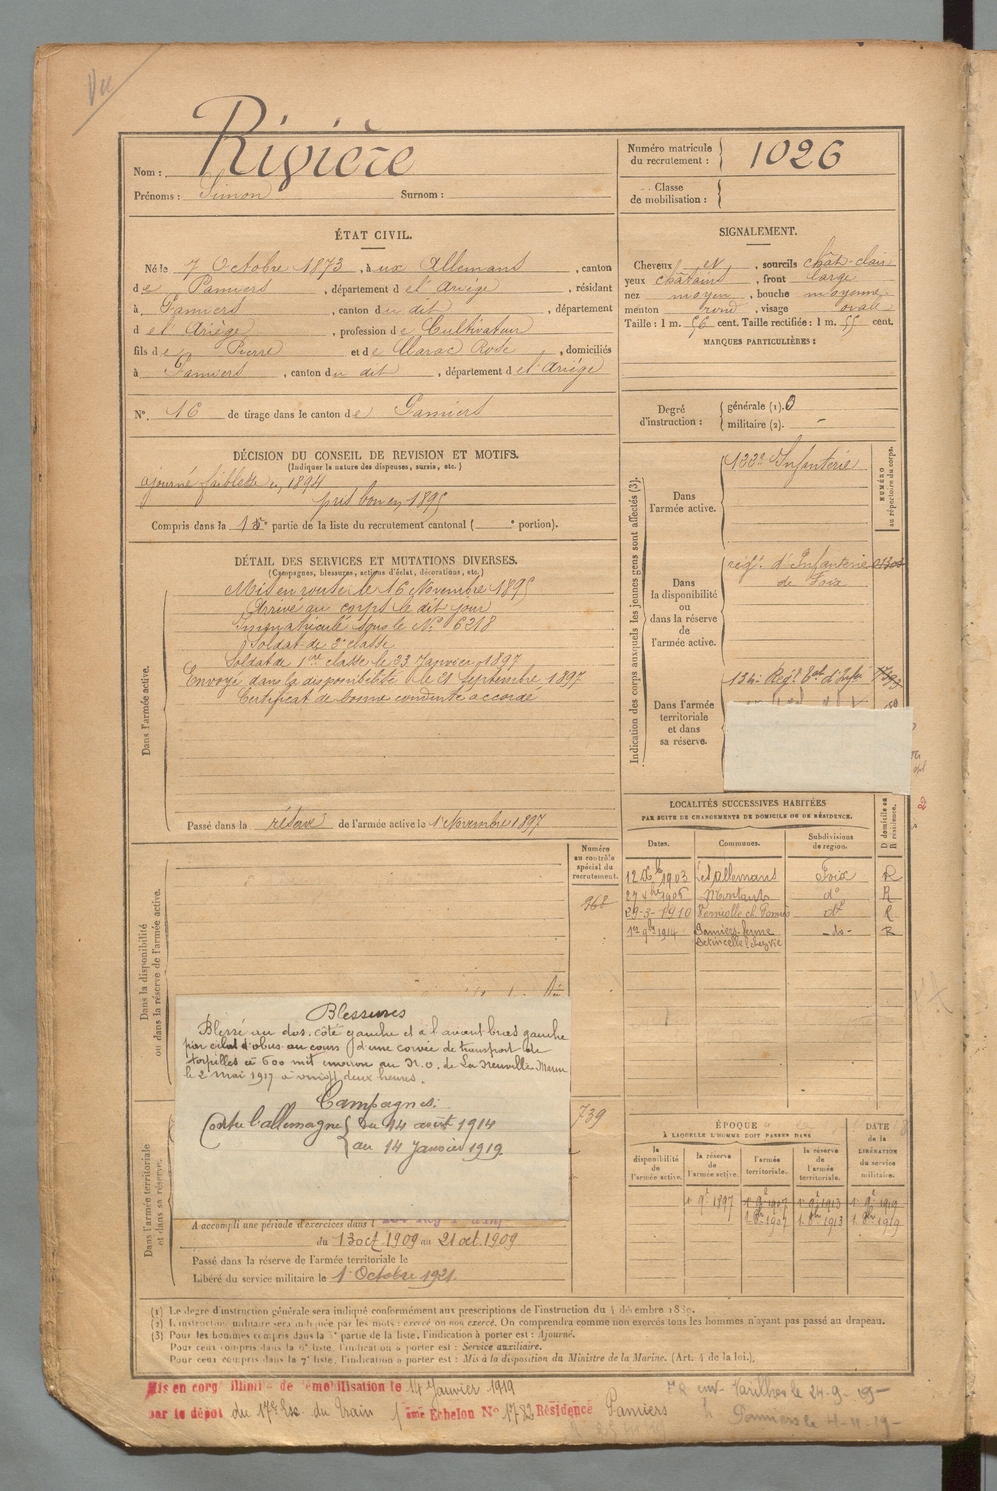 Vu
Rivière
Nom :
Prénoms : Simon Surnom :
Numéro matricule
du recrutement : 1026
Classe
de mobilisation :
ÉTAT CIVIL.
Né le 7 Octobre 1873, à ux Allemans, canton
de Pamiers, département de l'Ariège, résidant
à Pamiers, canton du dit, département
de l'Ariège, profession de Cultivateur
fils de Pierre et de Marac Rose, domiciliés
à Pamiers, canton du dit, département de l'Ariège
N° 16 de tirage dans le canton de Pamiers
SIGNALEMENT.
Cheveux et, sourcils chât-clair
yeux châtains, front large
nez moyen, bouche moyenne
menton rond, visage ovale
Taille : 1 m. 56 cent. Taille rectifiée : 1 m. 55 cent.
MARQUES PARTICULIÈRES :
Degré
d'instruction :
générale (1). 0
militaire (2). -
DÉCISION DU CONSEIL DE REVISION ET MOTIFS.
(Indiquer la nature des dispenses, sursis, etc.)
ajourné faiblesse en 1894
pris bon en 1895
Compris dans la partie de la liste du recrutement cantonal ( ° portion).
DÉTAIL DES SERVICES ET MUTATIONS DIVERSES.
(Campagnes, blessures, actions d'éclat, décorations, etc.)
Dans l'armée active.
Mis en route le 16 Novembre 1895
Arrivé au corps le dit jour
Immatriculé sous le N° 6218
Soldat de 2e classe
Soldat de 1re classe le 23 Janvier 1897
Envoyé dans la disponibilité le 21 Septembre 1897
Certificat de bonne conduite accordé
Passé dans la réserve de l'armée active le 1 Novembre 1897
Indication des corps auxquels les jeunes gens sont affectés (3).
NUMÉRO
au répertoire du corps.
Dans
l'armée active.
Infanterie
Dans
la disponibilité
ou
dans la réserve
de
l'armée active.
régt. d'Infanterie
de Foix
Dans l'armée
territoriale
et dans
sa réserve.
134e Régt tal d'Infie
LOCALITÉS SUCCESSIVES HABITÉES
PAR SUITE DE CHANGEMENTS DE DOMICILE OU DE RÉSIDENCE.
Dates. Communes. Subdivisions
de région. D domicile ou
R résidence.
1903 Les Allemans Foix R
1906 Montaut do R
29-3-1910 Verniolle do R
1914 Pamiers ferme -do- R
Dans la disponibilité
ou dans la réserve de l'armée active.
Numéro
au contrôle
spécial du
recrutement.
968
739
Blessures
Blessé au dos, côté gauche et à l'avant-bras gauche
par éclat d'obus au cours d'une corvée de transport de
torpilles à 600 mèt environ au N.O. de La Neuville Marne
le 2 mai 1917 à vingt deux heures.
Campagnes.
Contre l'allemagne du 14 août 1914
au 14 Janvier 1919.
Dans l'armée territoriale
et dans sa réserve.
A accompli une période d'exercices dans l
du 13 oct 1909 au 21 oct. 1909
Passé dans la réserve de l'armée territoriale le
Libéré du service militaire le 1 Octobre 1921.
ÉPOQUE
À LAQUELLE L'HOMME DOIT PASSER DANS
DATE
de la
LIBÉRATION
du service
militaire.
la
disponibilité
de
l'armée active.
la réserve
de
l'armée active.
l'armée
territoriale.
la réserve
de
l'armée
territoriale.
1 9e 1897 1 9e 1907 1 9e 1913 1 9e 1919
1. 8bre 1907 1. 8bre 1913 1. 8bre 1919
(1) Le degré d'instruction générale sera indiqué conformément aux prescriptions de l'instruction du 4 décembre 1889.
(2) L'instruction militaire sera indiquée par les mots : exercé ou non exercé. On comprendra comme non exercés tous les hommes n'ayant pas passé au drapeau.
(3) Pour les hommes compris dans la partie de la liste, l'indication à porter est : Ajourné.
Pour ceux compris dans la 6e liste, l'indication à porter est : Service auxiliaire.
Pour ceux compris dans la 7e liste, l'indication à porter est : Mis à la disposition du Ministre de la Marine. (Art. 4 de la loi.).
Mis en congé illimité de démobilisation le 14 Janvier 1919
par le dépôt du 17e Esc. du Train 1ème Echelon N° 1782 Résidence Pamiers
Varilhes le 24-9-19-
Pamiers le 4-11-19-